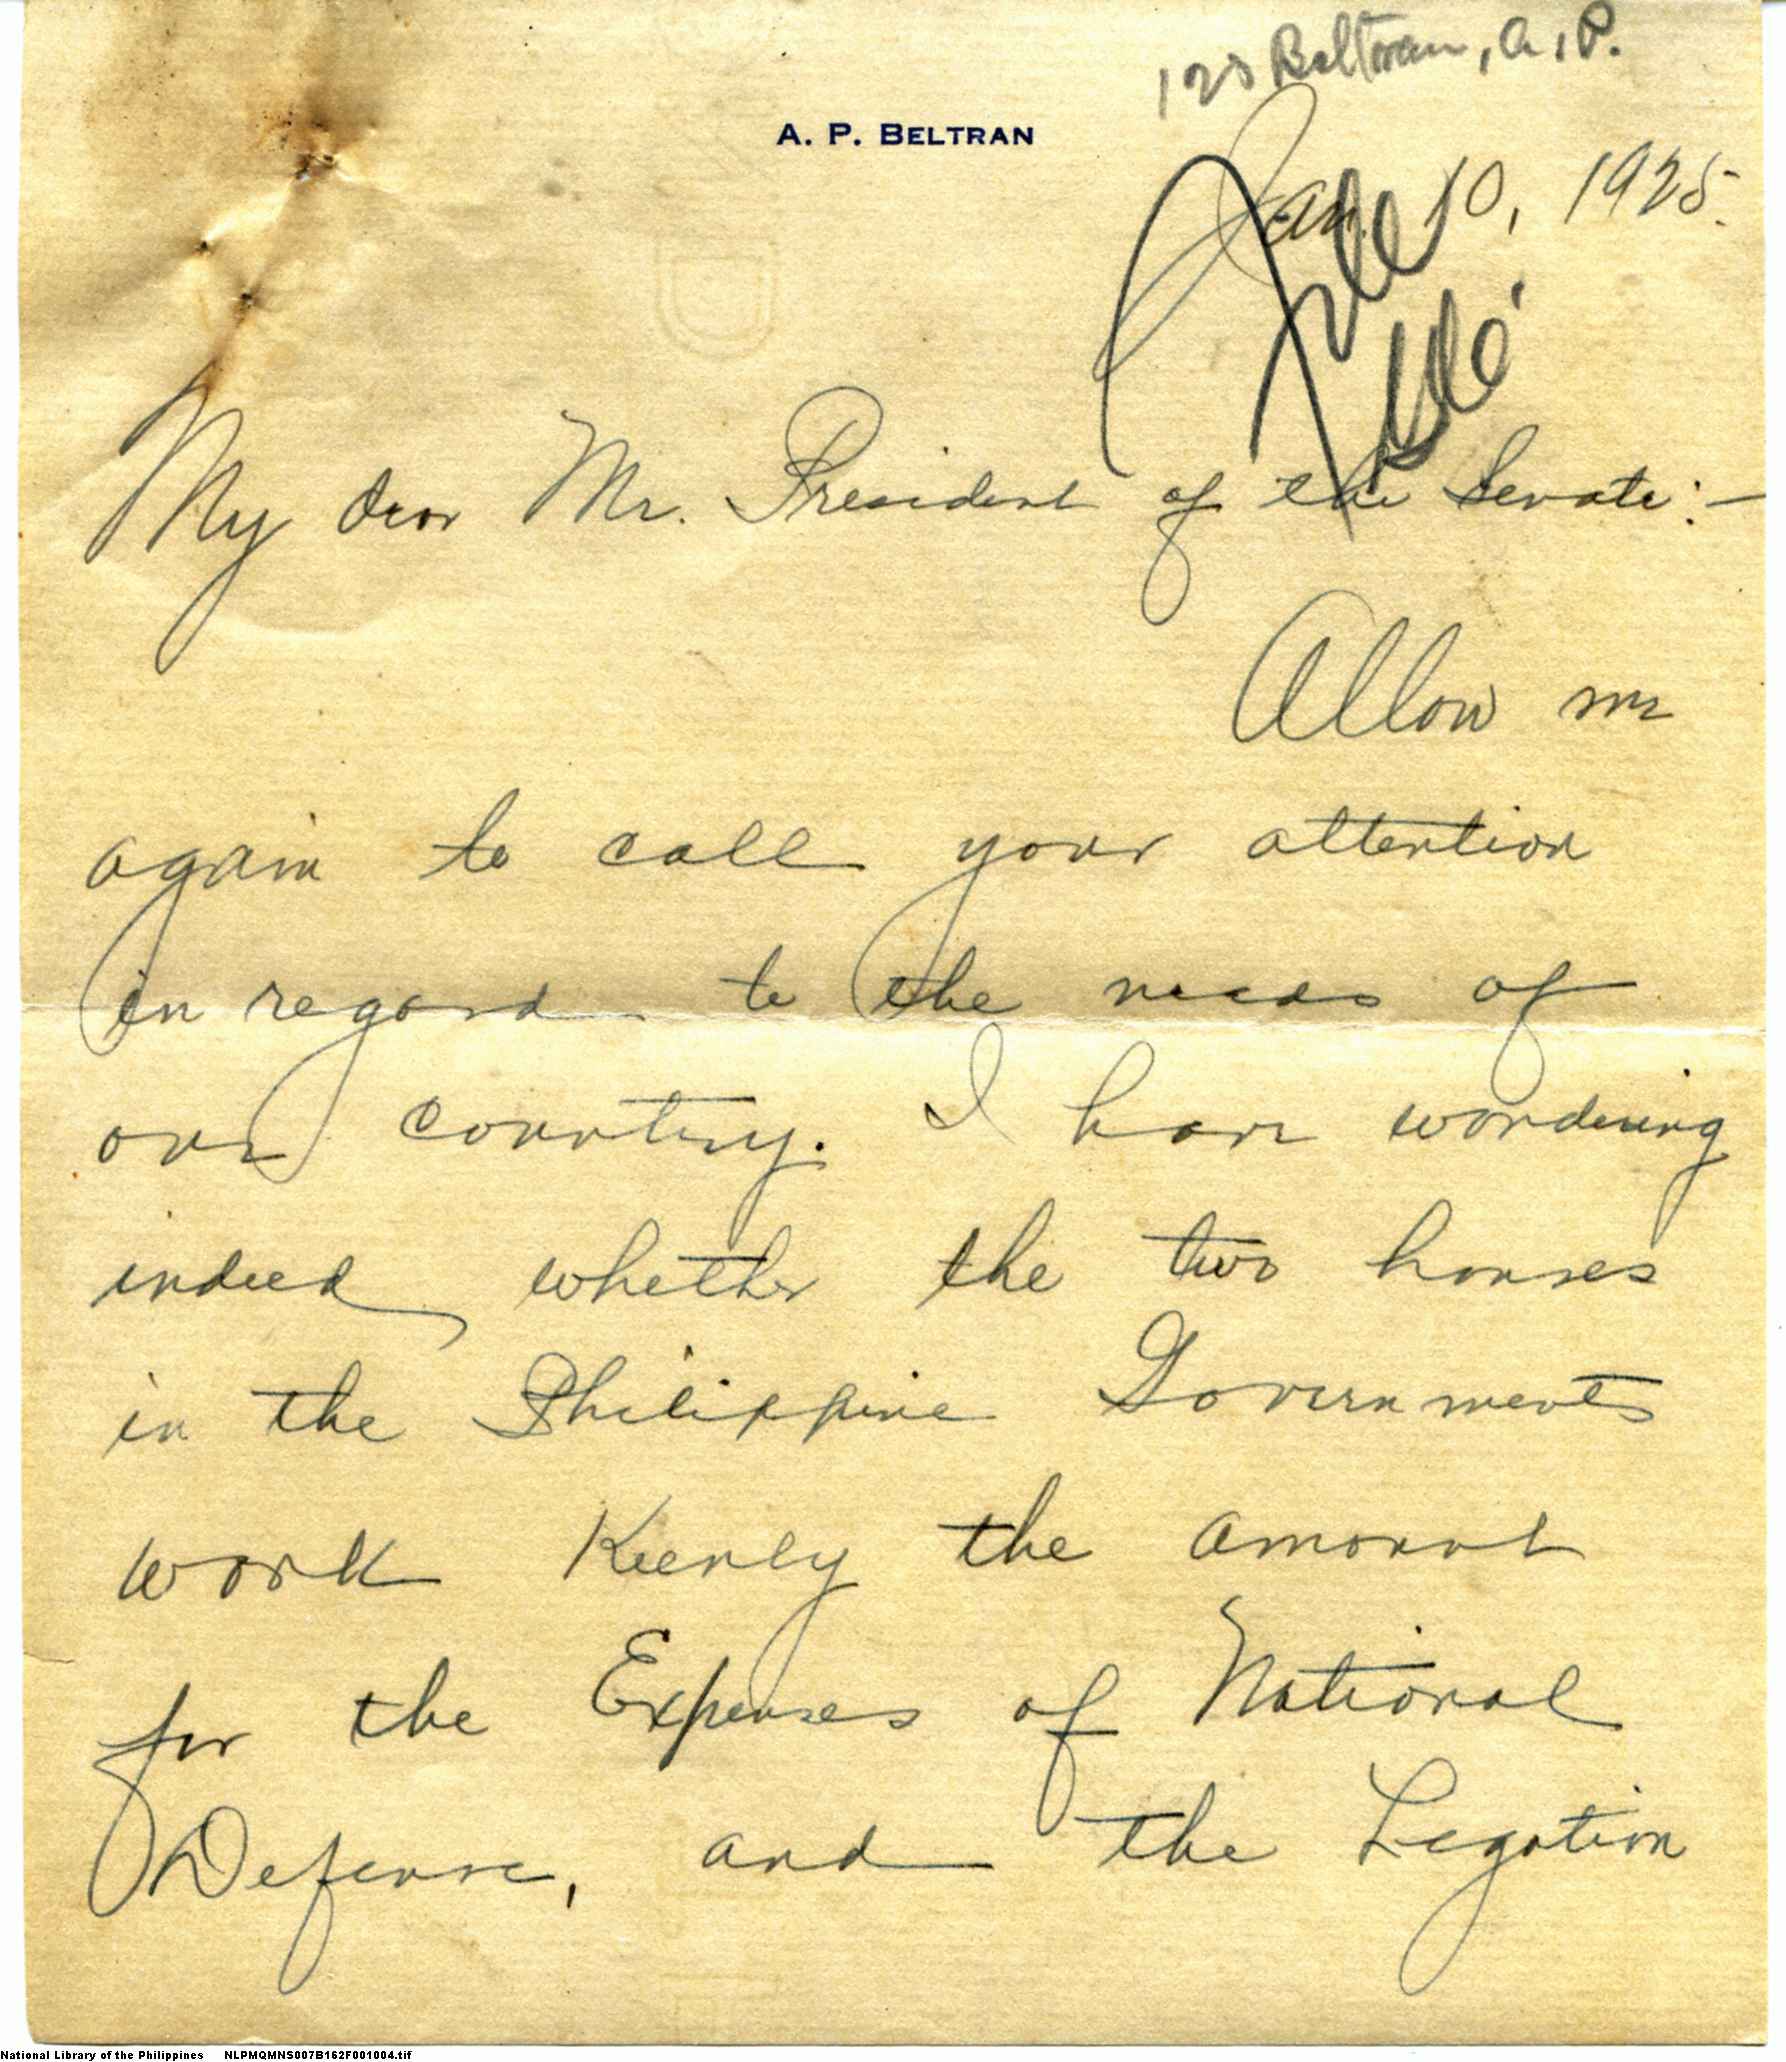 Beltran, A. P.
A. P. BELTRAN
Jan. 10, 1925.
File
My dear Mr. President of the Senate:—
Allow me
again to call your attention
in regard to the needs of
our country. I have wondering
indeed, whether the two houses
in the Philippine Governments
work keenly the amount
for the Expenses of National
Defense, and the Legation
National Library of the Philippines NLPMQMNS007B162F001004.tif